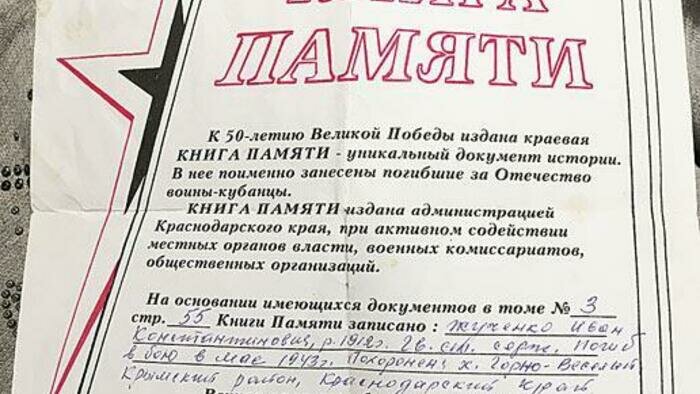 ПАМЯТИ
К 50-летию Великой Победы издана краевая
КНИГА ПАМЯТИ - уникальный документ истории.
В нее поименно занесены погибшие за Отечество
воины-кубанцы.
КНИГА ПАМЯТИ издана администрацией
Краснодарского края, при активном содействии
местных органов власти, военных комиссариатов,
общественных организаций.
На основании имеющихся документов в томе № 3
стр. 55 Книги Памяти записано : Жученко Иван
Константинович, р. 1912г. Гв. ст. серж. Погиб
в бою в мае 1943г. Похоронен: х. Горно-Веселый
Крымский район, Краснодарский край.